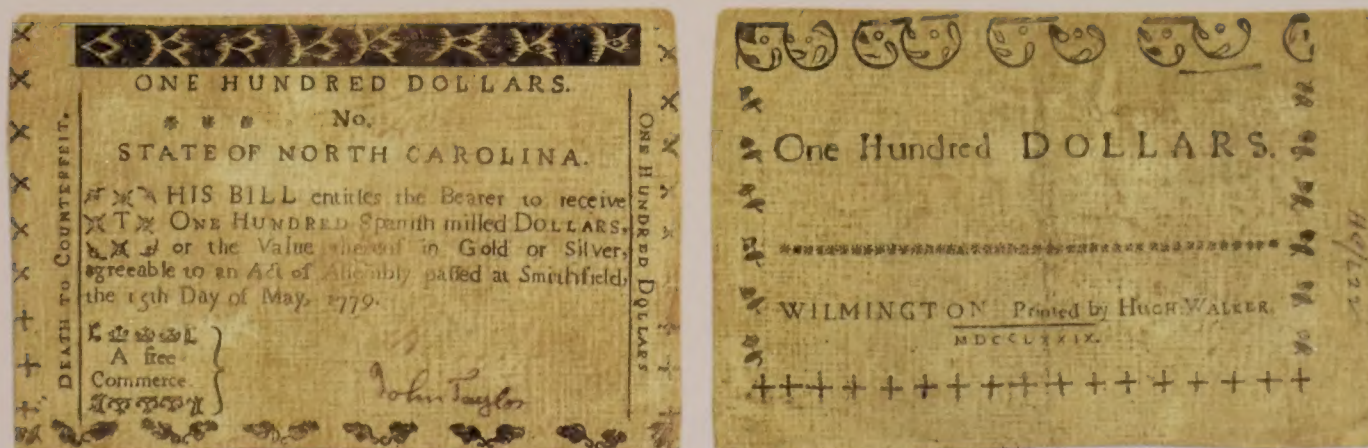 ONE HUNDRED DOLLARS.
No.
STATE OF NORTH CAROLINA.
THIS BILL entitles the Bearer to receive
ONE HUNDRED Spanish milled DOLLARS,
or the Value thereof in Gold or Silver,
agreeable to an Act of Assembly passed at Smithfield,
the 15th Day of May, 1779.
A free
Commerce.
John Taylor
DEATH TO COUNTERFEIT.
ONE HUNDRED DOLLARS
One Hundred DOLLARS.
WILMINGTON Printed by HUGH WALKER.
MDCCLXXIX.